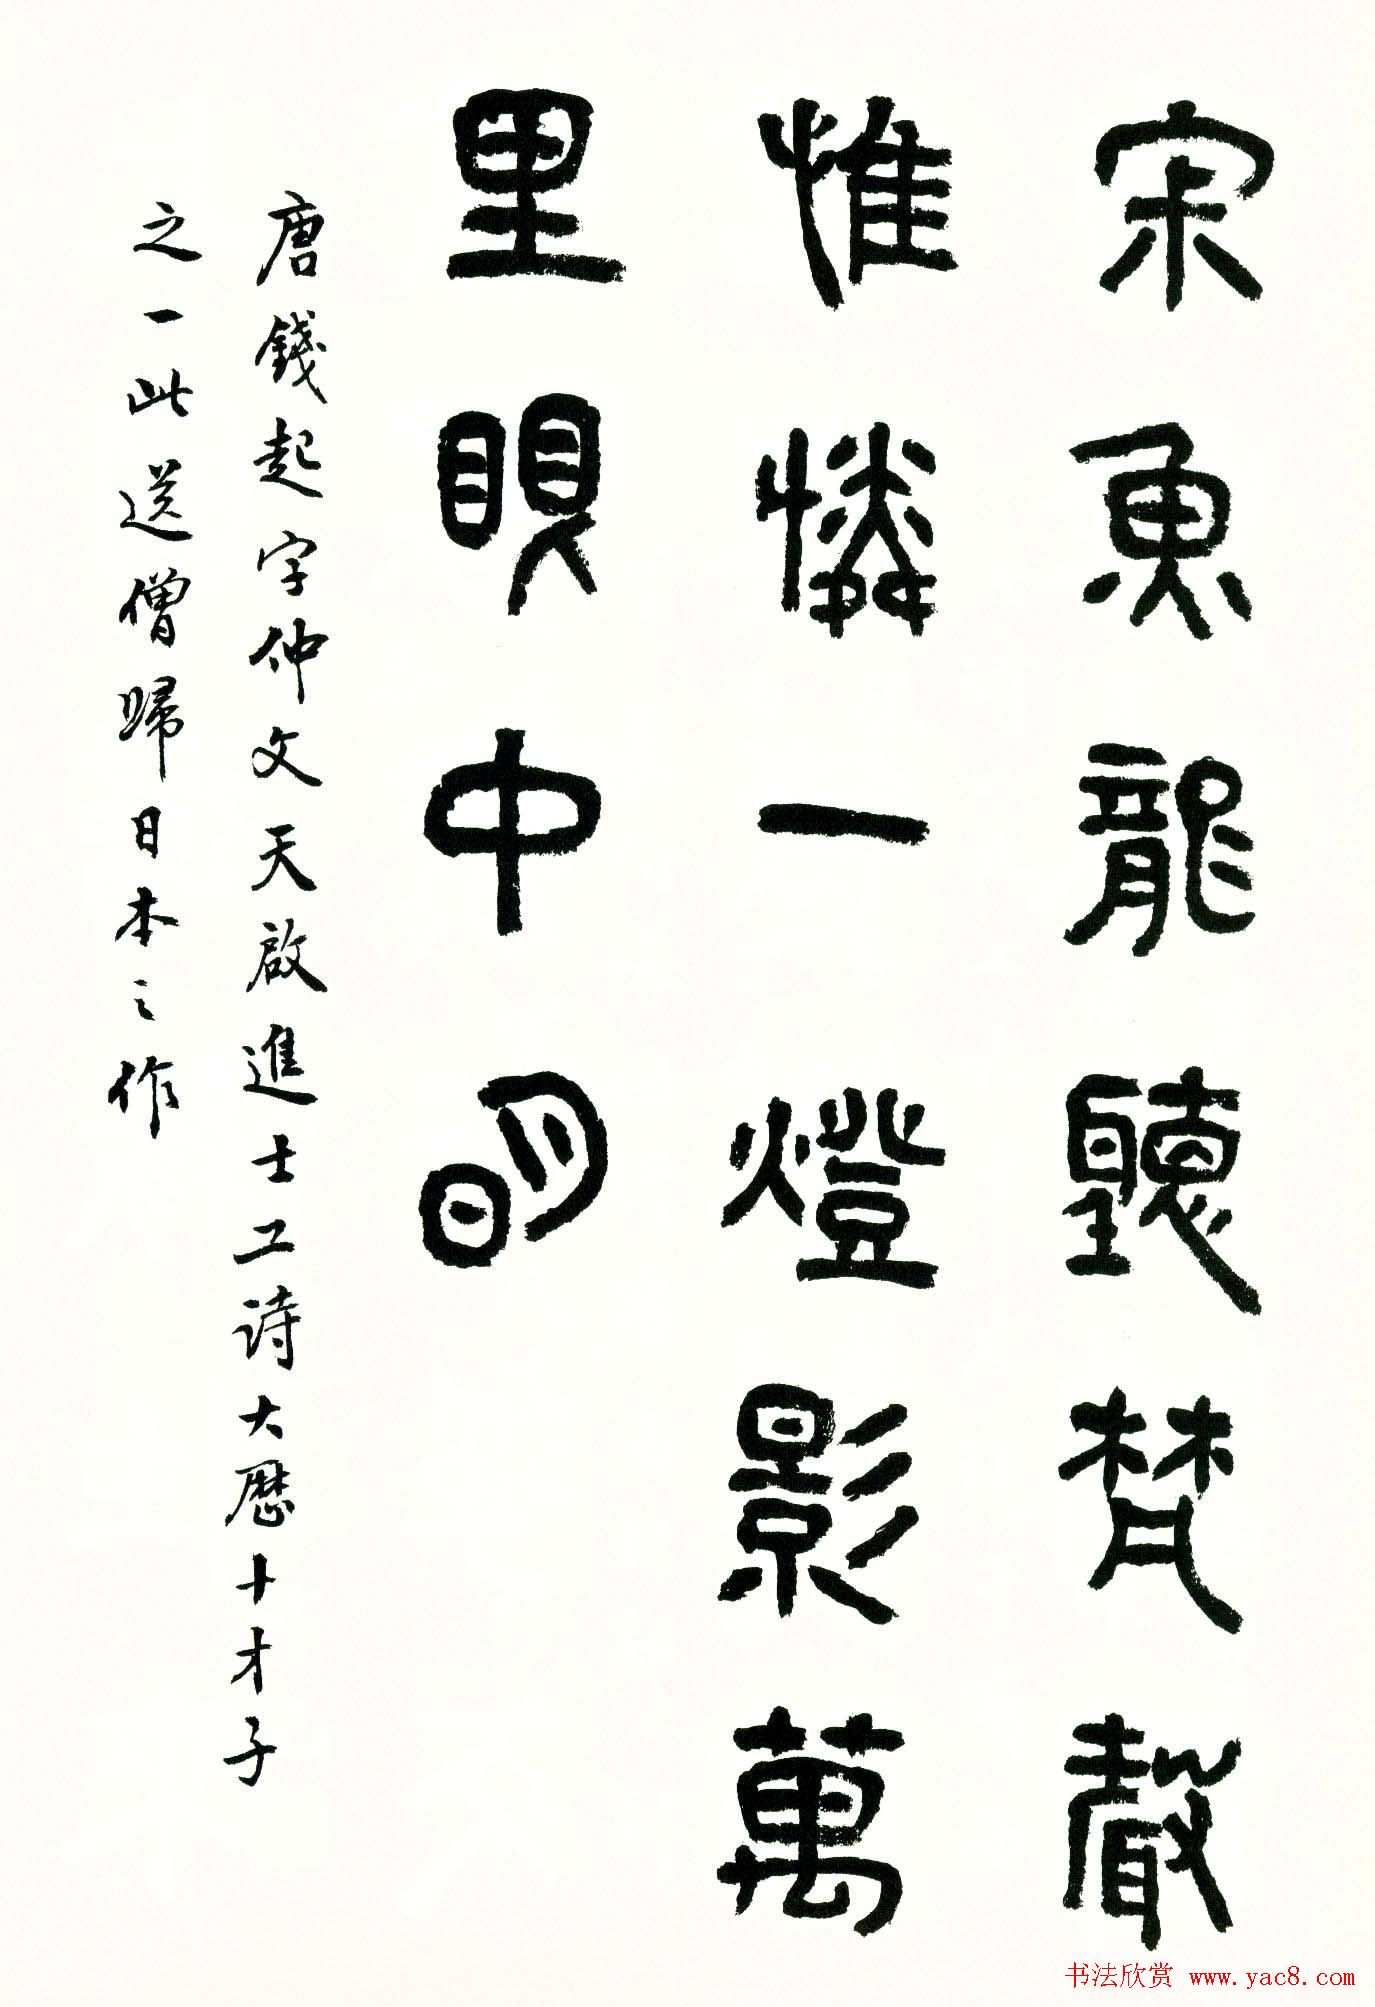 宋魚龍聽梵聲
惟憐一燈影萬
里眼中明
唐錢起字仲文天啟進士工詩大曆十才子
之一此送僧歸日本之作
书法欣赏 www.yac8.com